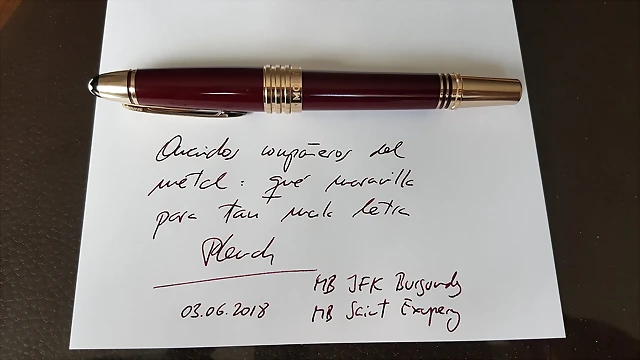 Queridos compañeros del
metal: qué maravilla
para tan mala letra
03.06.2018
MB JFK Burgundy
MB Saint Exupery